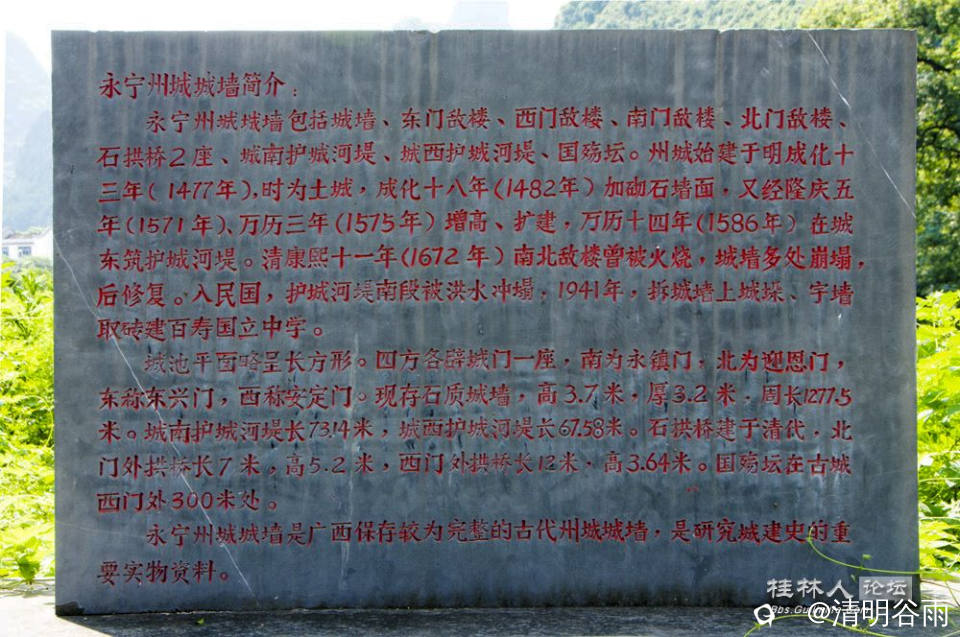 永宁州城城墙简介：
永宁州城城墙包括城墙、东门敌楼、西门敌楼、南门敌楼、北门敌楼、
石拱桥2座、城南护城河堤、城西护城河堤、国殇坛。州城始建于明成化十
三年(1477年),时为土城，成化十八年(1482年)加砌石墙面，又经隆庆五
年(1571年)、万历三年(1575年)增高、扩建，万历十四年(1586年)在城
东筑护城河堤。清康熙十一年(1672年)南北敌楼曾被火烧，城墙多处崩塌，
后修复。入民国，护城河堤南段被洪水冲塌，1941年，拆城墙上城垛、宇墙
取砖建百寿国立中学。
城池平面略呈长方形。四方各辟城门一座，南为永镇门，北为迎恩门，
东称东兴门，西称安定门。现存石质城墙，高3.7米，厚3.2米，周长1277.5
米。城南护城河堤长73.14米，城西护城河堤长67.58米。石拱桥建于清代，北
门外拱桥长7米，高5.2米，西门外拱桥长12米，高3.64米。国殇坛在古城
西门外300米处。
永宁州城城墙是广西保存较为完整的古代州城城墙，是研究城建史的重
要实物资料。
桂林人论坛
@清明谷雨